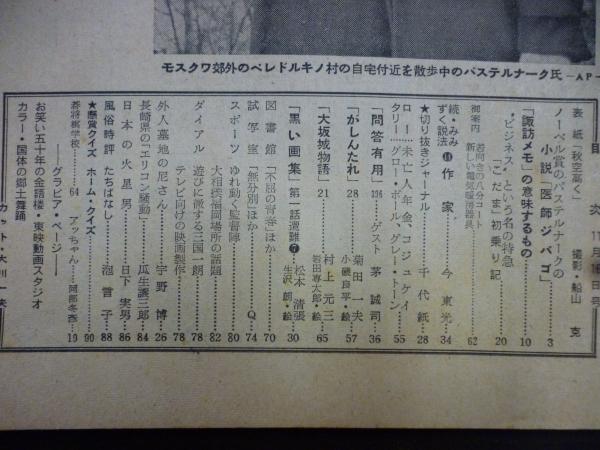 モスクワ郊外のペレドルキノ村の自宅付近を散歩中のパステルナーク氏 —AP—
目次 11月16日号
表紙「秋空高く」 撮影・船山 克
ノーベル賞のパステルナークの
小説「医師ジバゴ」 3
「諏訪メモ」の意味するもの 10
“ビジネス”という名の特急
「こだま」初乗り記 20
御案内 若向きの八分コート
新しい電気暖房器具 62
続・みみずく説法 ⑪ 作家 今 東光 34
★切り抜きジャーナル 千代紙 28
ロー…未亡人年金、コジュケイ
タリー…グロー・ボール、グレー・トーン 55
「問答有用」 ゲスト 茅 誠司 36
「がしんたれ」 28 菊田一夫
小磯良平・絵 57
「大坂城物語」 21 村上元三
岩田専太郎・絵 65
「黒い画集」 第一話遭難 ⑦ 松本清張
生沢 朗・絵 30
図書館 「不屈の青春」ほか 70
試写室 「無分別」ほか Q 74
スポーツ ゆれ動く監督陣 80
大相撲福岡場所の話題 82
ダイアル 遊びに徹する三国一朗 78
テレビ向けの映画製作 78
外人墓地の尼さん 宇野 博 26
長崎県の「エリコン騒動」 瓜生譲二郎 84
日本の火星男 日下実男 86
風俗時評 たちばなし 泡雪子 88
★懸賞クイズ ホーム・クイズ 90
養将棋学校 64 アッちゃん 岡部冬彦 19
グラビア・ページ
お笑い五十年の金語楼・東映動画スタジオ
カラー・国体の郷土舞踊
カット・大川一夫